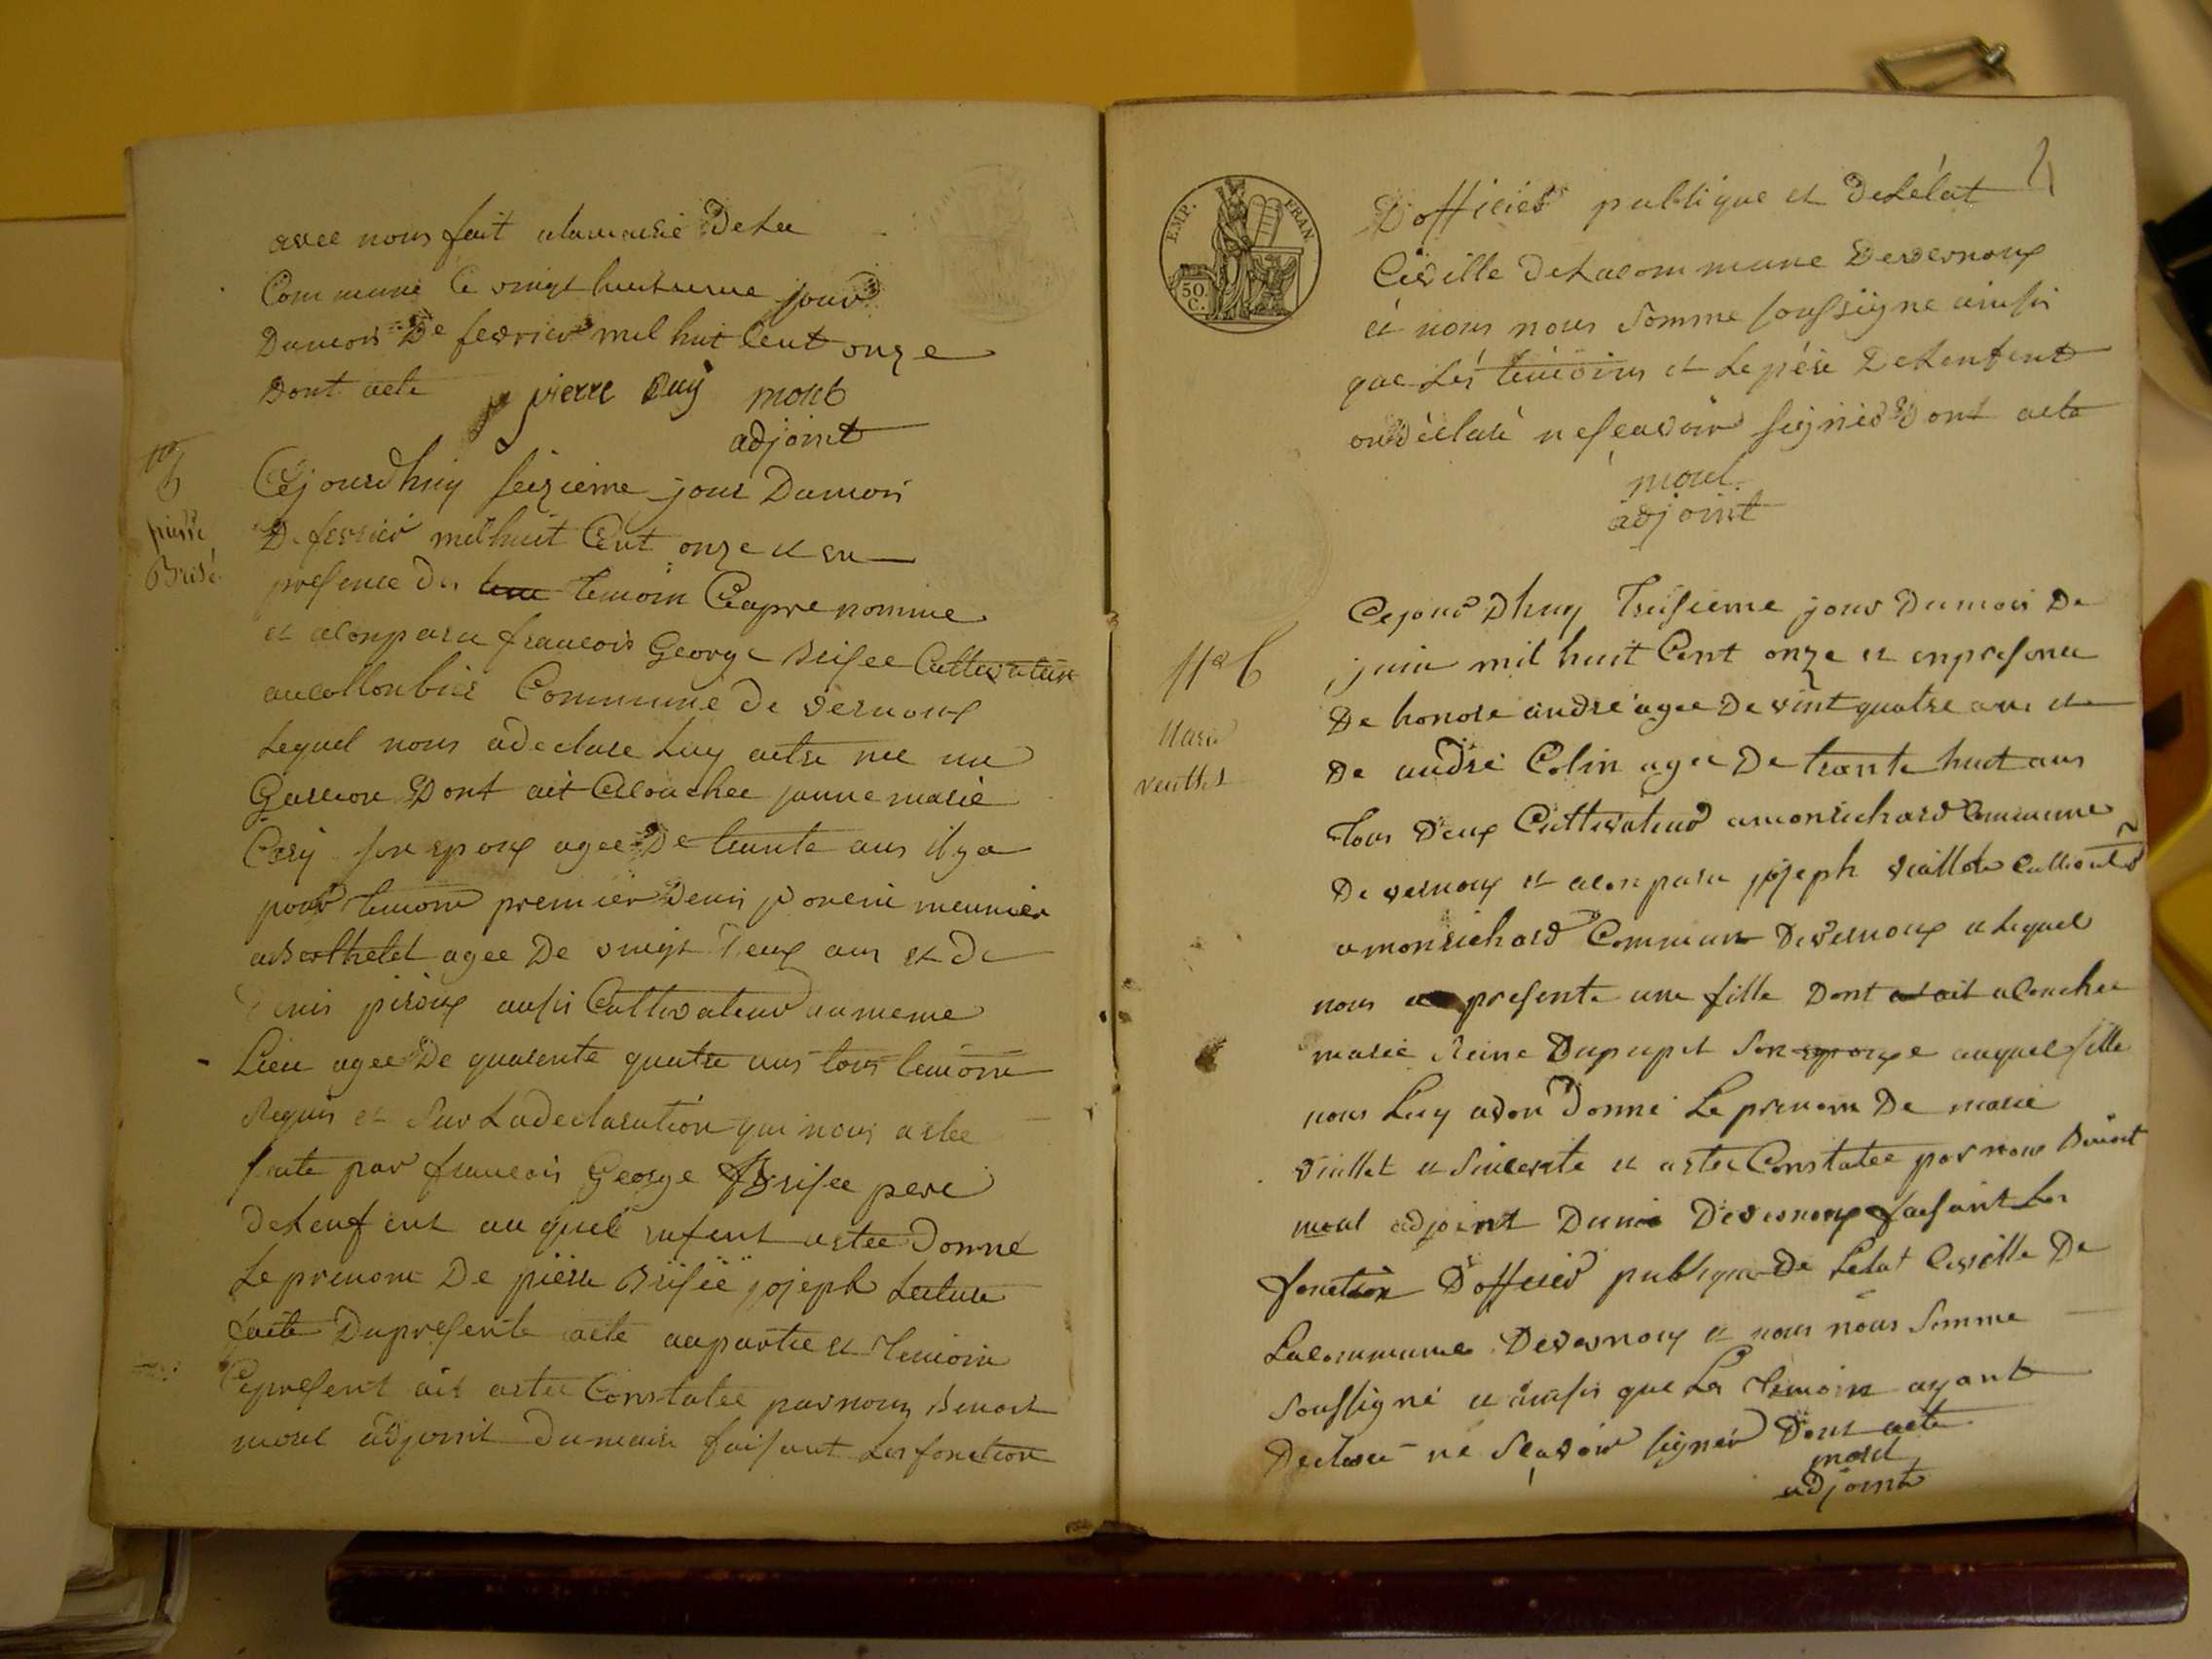 avec nous fait alamairie Dela
Commune Ce vingt huitieme jour
Dumois De fevrier mil huit Cent onze
Dont acte pierre Puy morel
adjoint
pierre
Brisé
Cejourdhuy seizieme jour Dumois
De fevrier mil huit Cent onze et en
presence des temoin Ciapre nomme
et alonparu francois George brisee Cultivateur
aucollonbier Commune De vernoux
Lequel nous adeclare Luy aetre nee un
Garcon Dont ait acouchee janne marie
son epoux agee De trante ans il y a
pour temoin premier Denis meunier
auberthelet agee De vingt Deux ans et De
Denis piroux aussi Cultivateur aumeme
Lieu agee De quarente quatre ans tous temoin
Requis et Sur Ladeclaration qui nous aetee
faite par francois George Brisee pere
Delenfent au quel enfent aetee Donné
Le prenom De pierre Brisee jojeph Lecture
faite Dupresente acte aupartie et temoin
Cepresent ait aetee Constatee parnous Benoit
morel adjoint Dumaire faisant Les fonction
4
EMP. FRAN.
50. C.
Dofficier publique et DeLétat
Civille DeLacommune Devernoux
et nous nous Somme soussigne ainsi
que Les temoins et Le pére DeLenfent
ondéclaré nescavoir signier Dont acte
morel
adjoint
Cejour Dhuy Treisieme jour Dumois De
juin mil huit Cent onze et enpresence
De honore andre agee De vint quatre ans et
De andre Colin agee De trante huit ans
Tous Deux Cultivateur amonrichard Commune
De vernoux et alonparu jojeph viallet
amonrichard Commune Devernoux a Lequel
nous a presente une fille Dont ait acouchee
marie Reine Dupupet Son epouxe auquel fille
nous Luy avon Donné Le prenom De marie
viallet et Sincerite et aetee Constatee par nous Benoit
morel adjoint Devernoux faisant Les
fonction Dofficier publique De Letat Civille De
Lacommune Devernoux et nous nous Somme
Soussigné et ainsi que Les temoin ayant
Declaré ne Scavoir signér Dont acte
morel
adjoint